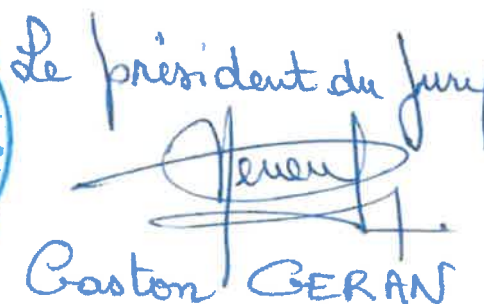 Le président du Jury
Gaston GERAN